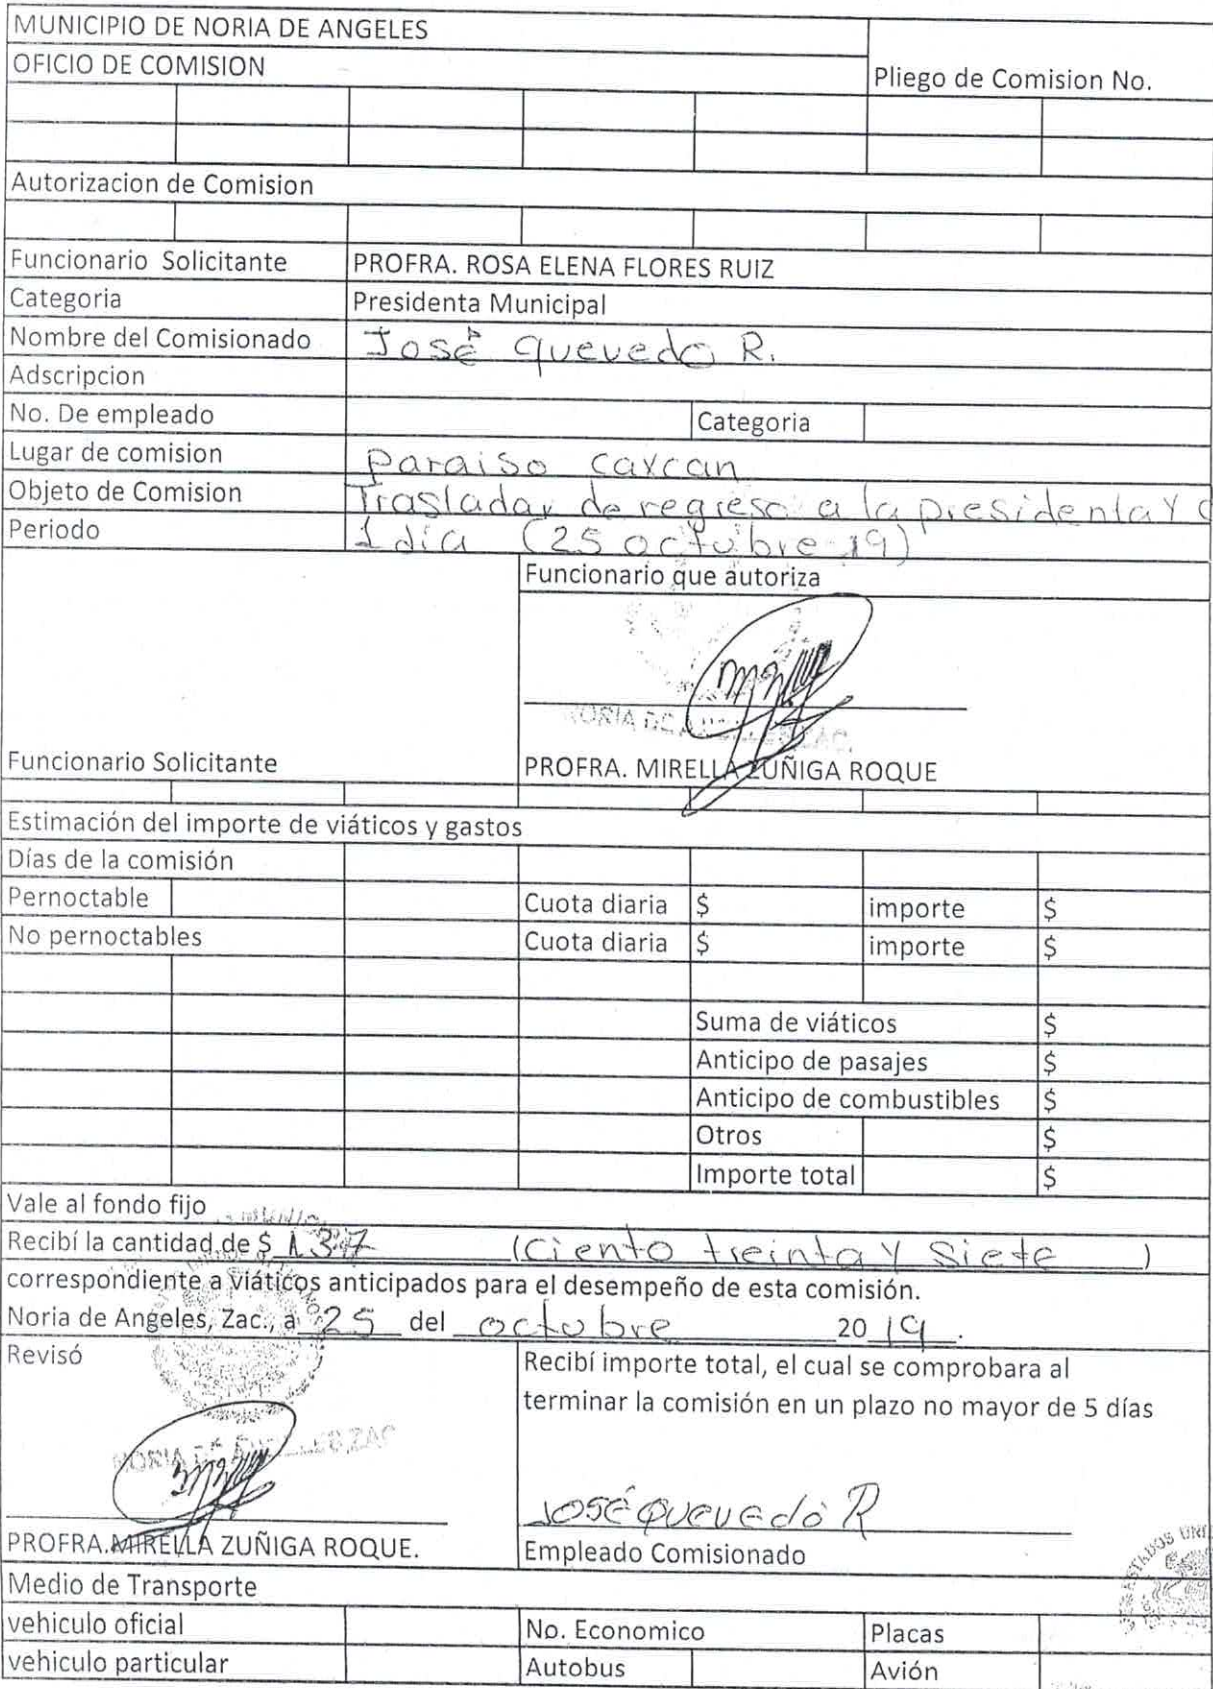 MUNICIPIO DE NORIA DE ANGELES
OFICIO DE COMISION
Pliego de Comision No.
Autorizacion de Comision
Funcionario Solicitante PROFRA. ROSA ELENA FLORES RUIZ
Categoria Presidenta Municipal
Nombre del Comisionado José quevedo R.
Adscripcion
No. De empleado Categoria
Lugar de comision Paraiso caxcan
Objeto de Comision Trasladar de regreso a la presidenta y
Periodo 1 día (25 octubre 19)
Funcionario que autoriza
NORIA DE ANGELES ZAC.
Funcionario Solicitante PROFRA. MIRELLA ZUÑIGA ROQUE
Estimación del importe de viáticos y gastos
Días de la comisión
Pernoctable Cuota diaria $ importe $
No pernoctables Cuota diaria $ importe $
Suma de viáticos $
Anticipo de pasajes $
Anticipo de combustibles $
Otros $
Importe total $
Vale al fondo fijo
Recibí la cantidad de $ 137 (Ciento treinta y Siete )
correspondiente a viáticos anticipados para el desempeño de esta comisión.
Noria de Angeles, Zac., a 25 del octubre 2019.
Revisó
Recibí importe total, el cual se comprobara al
terminar la comisión en un plazo no mayor de 5 días
NORIA DE ANGELES, ZAC
José quevedo R
PROFRA.MIRELLA ZUÑIGA ROQUE. Empleado Comisionado
ESTADOS UNI
Medio de Transporte
vehiculo oficial No. Economico Placas
vehiculo particular Autobus Avión